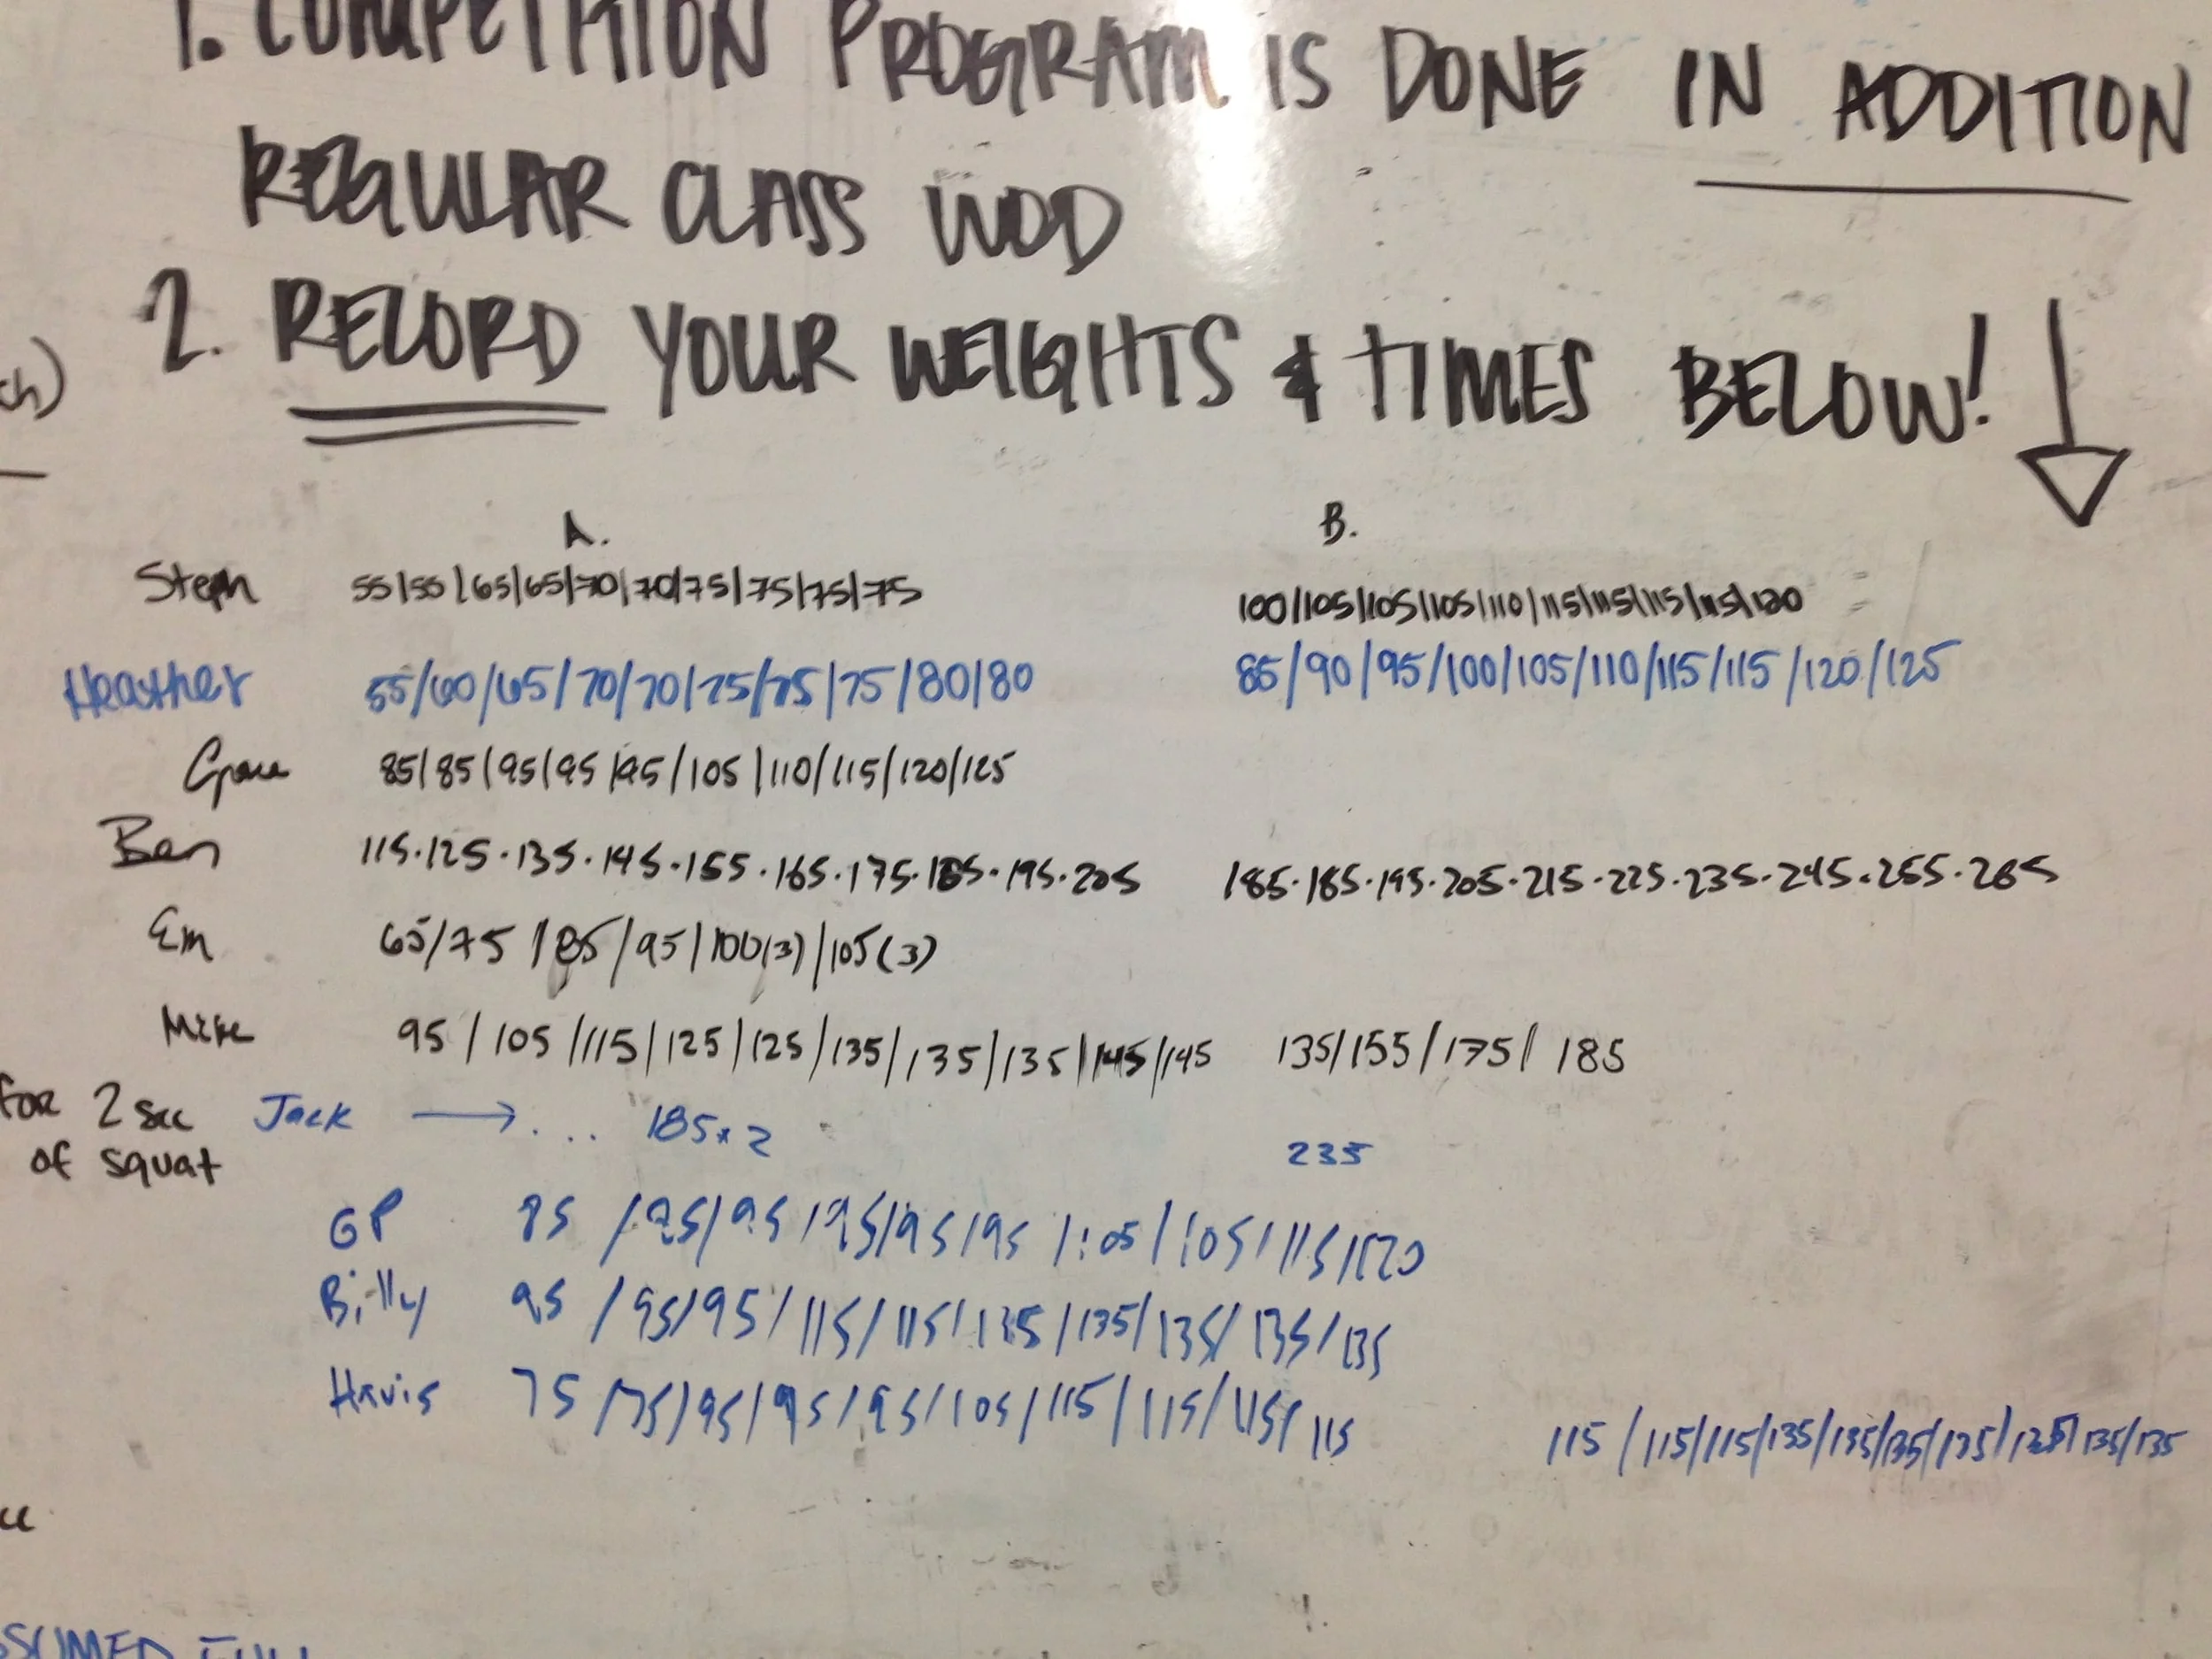 1. COMPETITION PROGRAM IS DONE IN ADDITION
REGULAR CLASS WOD
2. RECORD YOUR WEIGHTS & TIMES BELOW!
A. B.
Steph 55/55/65/65/70/70/75/75/75/75 100/105/105/105/110/115/115/115/115/120
Heather 55/60/65/70/70/75/75/75/80/80 85/90/95/100/105/110/115/115/120/125
85/85/95/95/95/105/110/115/120/125
Ben 115·125·135·145·155·165·175·185·195·205 185·185·195·205·215·225·235·245·255·265
Em 65/75/85/95/100(3)/105(3)
Mike 95/105/115/125/125/135/135/135/145/145 135/155/175/185
for 2 sec Jack → ... 185x2 235
of squat
GP 85/95/95/95/95/95/105/105/115/120
Billy 95/95/95/115/115/135/135/135/135/135
Havis 75/75/95/95/95/105/115/115/115/115 115/115/115/135/135/135/135/135/135/135